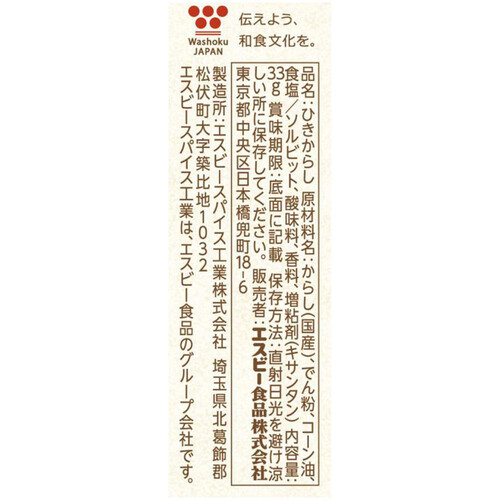 Washoku
JAPAN
伝えよう、
和食文化を。
品名:ひきからし 原材料名:からし(国産)、でん粉、コーン油、
食塩/ソルビット、酸味料、香料、増粘剤(キサンタン) 内容量:
33g 賞味期限:底面に記載 保存方法:直射日光を避け涼
しい所に保存してください。 販売者:エスビー食品株式会社
東京都中央区日本橋兜町18-6
製造所:エスビースパイス工業株式会社 埼玉県北葛飾郡
松伏町大字築比地1032
エスビースパイス工業は、エスビー食品のグループ会社です。